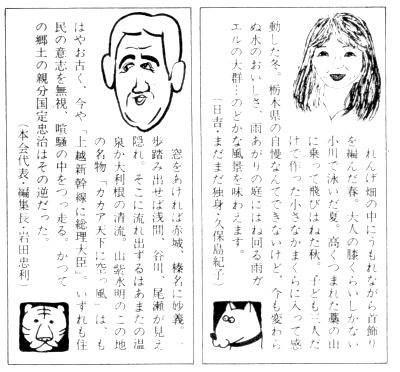 れんげ畑の中にうもれながら首飾り
を編んだ春。大人の膝くらいしかない
小川で泳いだ夏。高くつまれた藁の山
に乗って飛びはねた秋。子ども三人だ
けで作った小さなかまくらに入って感
動した冬。栃木県の自慢なんてできないけど、今も変わら
ぬ水のおいしさ、雨あがりの庭にはね回る雨が
エルの大群…のどかな風景を味わえます。
(日吉・まだまだ独身・久保島紀子)
窓をあければ赤城、榛名に妙義、
歩踏み出せば浅間、谷川、尾瀬が見え
隠れ。そこに流れ出ずるはあまたの温
泉か大利根の清流。山紫水明のこの地
の名物「カカア天下に空っ風」は、も
はやお古く、今や「上越新幹線に総理大臣」。いずれも住
民の意志を無視、喧騒の中をつっ走る。かつて
の郷土の親分国定忠治はその逆だった。
(本会代表・編集長・石田忠利)